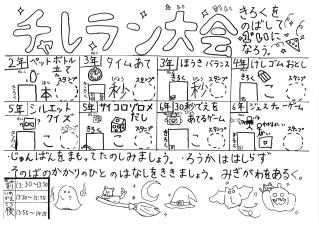 チャレラン大会
きろくを
のばして
1位に
なろう。
2年 ペットボトル
3年 タイムあて
3年 ほうきバランス
4年 けしゴムおとし
本
秒
秒
こ
スタンプ
スタンプ
スタンプ
スタンプ
5年 シルエット
クイズ
5年 サイコロゾロメ
だし
6年 30秒で文を
あてるゲーム
6年 ジェスチャーゲーム
こ
こ
こ
こ
じゅんばんをまもってたのしみましょう。ろうかははしらず
そのばのかかりのひとのはなしをききましょう。みぎがわをあるく。
前
13:30~13:50
後
13:55~14:15